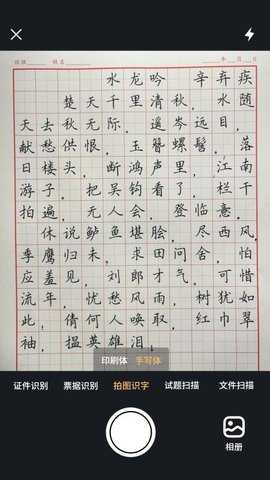 班级 姓名 年 月 日
水龙吟 辛弃疾
楚天千里清秋，水随
天去秋无际。遥岑远目，
献愁供恨，玉簪螺髻。落
日楼头，断鸿声里，江南
游子。把吴钩看了，栏干
拍遍，无人会，登临意。
休说鲈鱼堪脍，尽西风，
季鹰归未？求田问舍，怕
应羞见，刘郎才气。可惜
流年，忧愁风雨，树犹如
此！倩何人唤取，红巾翠
袖，揾英雄泪。
印刷体 手写体
证件识别 票据识别 拍图识字 试题扫描 文件扫描
相册